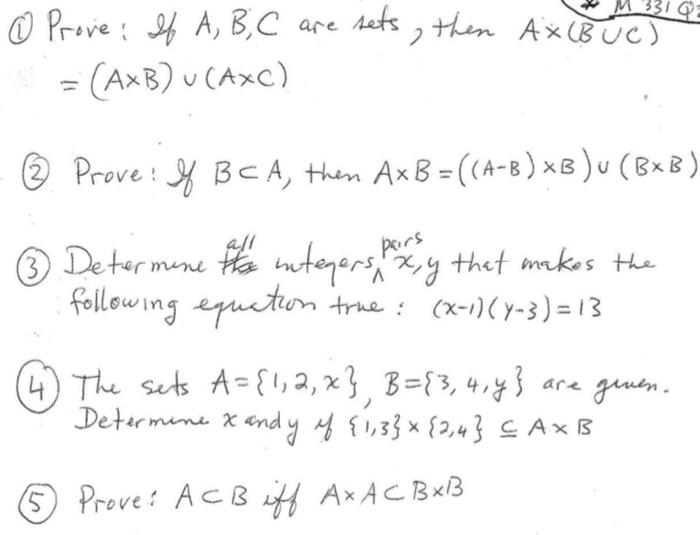 * M 331 Q
① Prove: If A, B, C are sets, then A×(B∪C)
= (A×B) ∪ (A×C)
② Prove: If B⊂A, then A×B = ((A-B)×B) ∪ (B×B)
③ Determine all integers pairs x,y that makes the
following equation true: (x-1)(y-3)=13
④ The sets A={1,2,x}, B={3,4,y} are given.
Determine x and y if {1,3}×{2,4} ⊆ A×B
⑤ Prove: A⊂B iff A×A⊂B×B